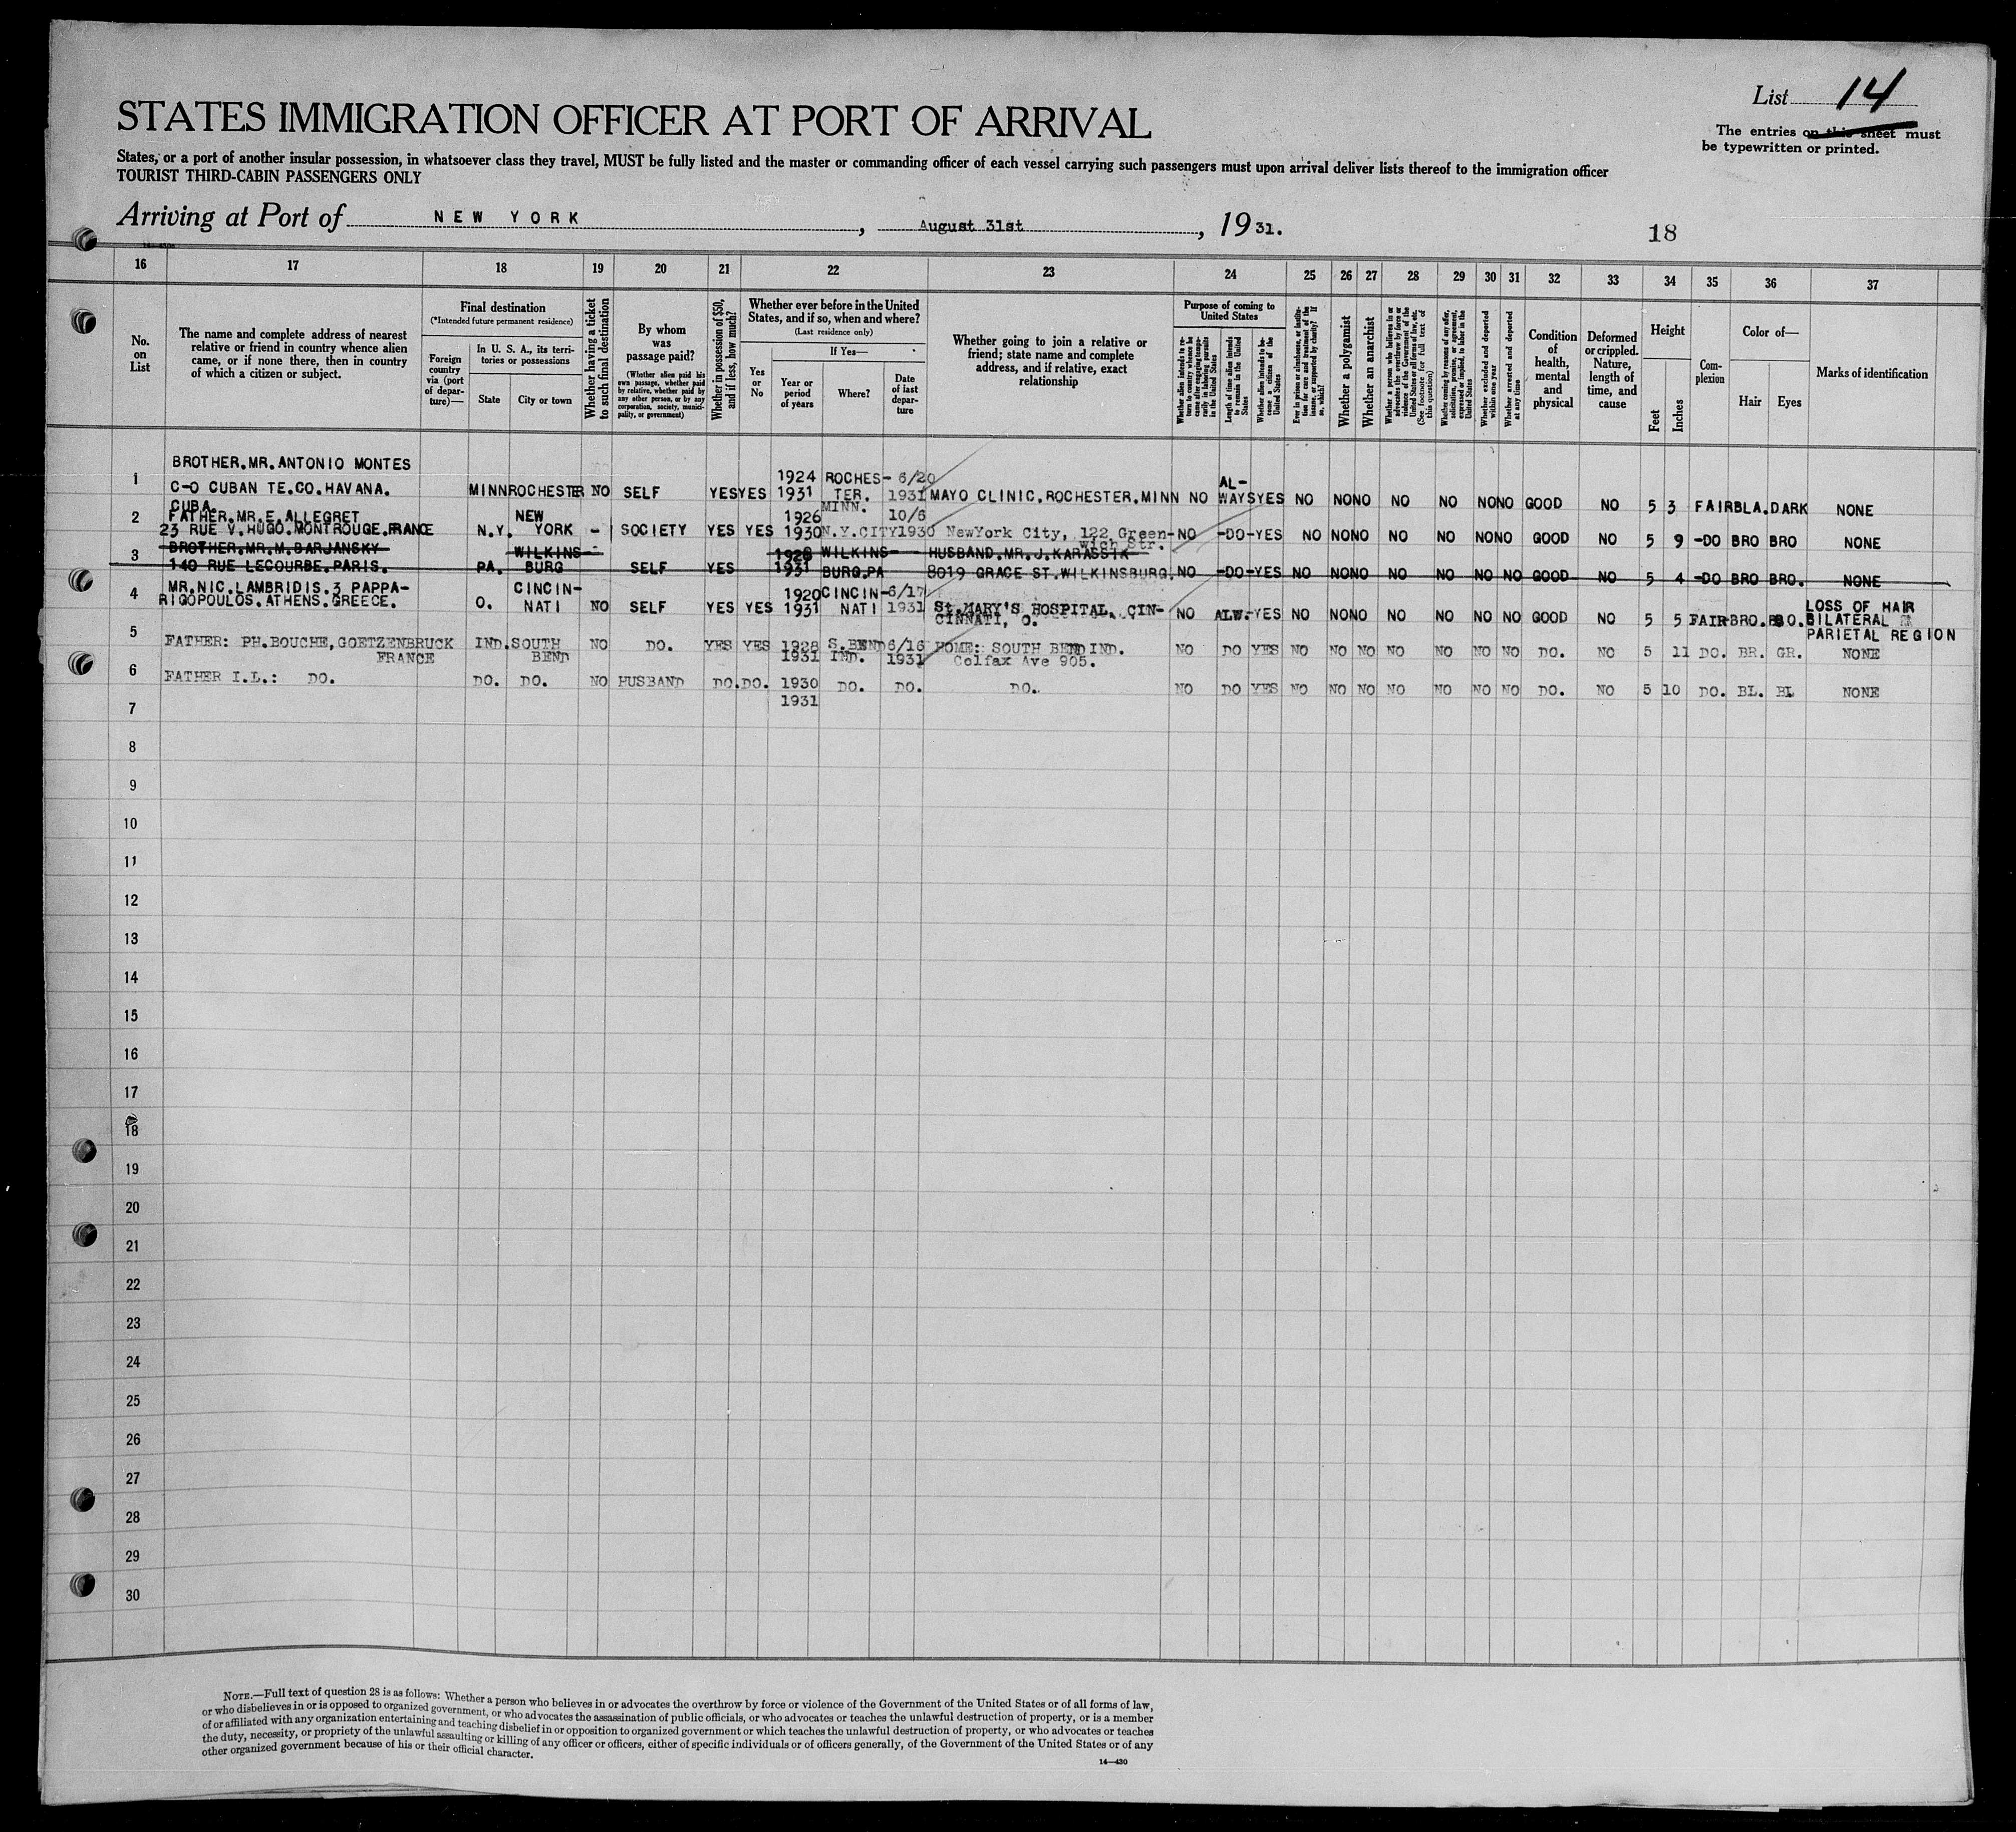 List 14
The entries on this sheet must
be typewritten or printed.
STATES IMMIGRATION OFFICER AT PORT OF ARRIVAL
States, or a port of another insular possession, in whatsoever class they travel, MUST be fully listed and the master or commanding officer of each vessel carrying such passengers must upon arrival deliver lists thereof to the immigration officer
TOURIST THIRD-CABIN PASSENGERS ONLY
Arriving at Port of NEW YORK, August 31st, 1931.
18
16 17 18 19 20 21 22 23 24 25 26 27 28 29 30 31 32 33 34 35 36 37
No.
on
List
The name and complete address of nearest
relative or friend in country whence alien
came, or if none there, then in country
of which a citizen or subject.
Final destination
(*Intended future permanent residence)
Foreign
country
via (port
of depar-
ture)—
In U. S. A., its terri-
tories or possessions
State City or town
Whether having a ticket
to such final destination
By whom
was
passage paid?
(Whether alien paid his
own passage, whether paid
by relative, whether paid by
any other person, or by any
corporation, society, munici-
pality, or government)
Whether in possession of $50,
and if less, how much?
Whether ever before in the United
States, and if so, when and where?
(Last residence only)
Yes
or
No
If Yes—
Year or
period
of years
Where?
Date
of last
depar-
ture
Whether going to join a relative or
friend; state name and complete
address, and if relative, exact
relationship
Purpose of coming to
United States
Length of time alien intends
to remain in the United
States
Whether alien intends to be-
come a citizen of the
United States
Whether a polygamist
Whether an anarchist
Whether excluded and deported
within one year
Whether arrested and deported
at any time
Condition
of
health,
mental
and
physical
Deformed
or crippled.
Nature,
length of
time, and
cause
Height
Feet Inches
Com-
plexion
Color of—
Hair Eyes
Marks of identification
BROTHER.MR.ANTONIO MONTES
1 C-O CUBAN TE.CO.HAVANA. CUBA. MINN ROCHESTER NO SELF YES YES 1924 1931 ROCHES-TER. MINN. 6/20 1931 MAYO CLINIC.ROCHESTER.MINN NO AL-WAYS YES NO NO NO NO NO NO NO GOOD NO 5 3 FAIR BLA. DARK NONE
2 FATHER.MR.E.ALLEGRET
23 RUE V.HUGO.MONTROUGE.FRANCE N.Y. NEW YORK - SOCIETY YES YES 1926 1930 N.Y.CITY 10/6 1930 NewYork City, 122 Green-wich Str. NO -DO- YES NO NO NO NO NO NO NO GOOD NO 5 9 -DO BRO BRO NONE
3 BROTHER.MR.M.BARJANSKY
140 RUE LECOURBE.PARIS. PA. WILKINS-BURG SELF YES 1928 1931 WILKINS-BURG.PA HUSBAND.MR.J.KARASSIK 8019 GRACE ST.WILKINSBURG. NO -DO- YES NO NO NO NO NO NO NO GOOD NO 5 4 -DO BRO BRO. NONE
4 MR.NIC.LAMBRIDIS.3 PAPPA-
RIGOPOULOS.ATHENS.GREECE. O. CINCIN-NATI NO SELF YES YES 1920 1931 CINCIN-NATI 6/17 1931 St.MARY'S HOSPITAL. CIN-CINNATI, O. NO ALW.- YES NO NO NO NO NO NO NO GOOD NO 5 5 FAIR BRO. BRO. LOSS OF HAIR BILATERAL PARIETAL REGION
5 FATHER: PH.BOUCHE,GOETZENBRUCK
FRANCE IND. SOUTH BEND NO DO. YES YES 1928 1931 S.BEND IND. 6/16 1931 HOME: SOUTH BEND IND. Colfax Ave 905. NO DO YES NO NO NO NO NO NO NO DO. NO 5 11 DO. BR. GR. NONE
6 FATHER I.L.: DO. DO. DO. NO HUSBAND DO. DO. 1930 1931 DO. DO. DO. NO DO YES NO NO NO NO NO NO NO DO. NO 5 10 DO. BL. BL NONE
7
8
9
10
11
12
13
14
15
16
17
18
19
20
21
22
23
24
25
26
27
28
29
30
NOTE.—Full text of question 28 is as follows: Whether a person who believes in or advocates the overthrow by force or violence of the Government of the United States or of all forms of law,
or who disbelieves in or is opposed to organized government, or who advocates the assassination of public officials, or who advocates or teaches the unlawful destruction of property, or is a member
of or affiliated with any organization entertaining and teaching disbelief in or opposition to organized government or which teaches the unlawful destruction of property, or who advocates or teaches
the duty, necessity, or propriety of the unlawful assaulting or killing of any officer or officers, either of specific individuals or of officers generally, of the Government of the United States or of any
other organized government because of his or their official character.
14—430